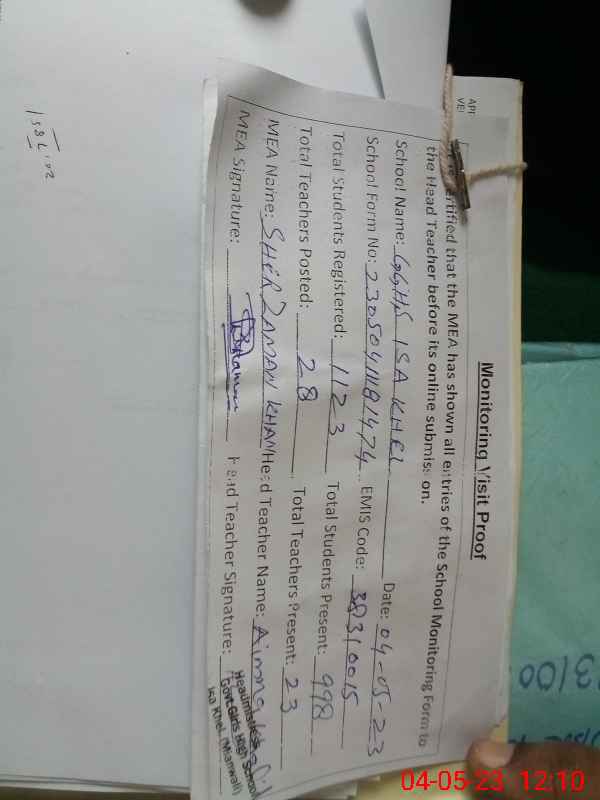 API
VEI
Monitoring Visit Proof
It is certified that the MEA has shown all entries of the School Monitoring Form to
the Head Teacher before its online submission.
School Name: GGHS ISA KHEL Date: 04-05-23
School Form No: 2305041181474 EMIS Code: 38310015
Total Students Registered: 1123 Total Students Present: 998
Total Teachers Posted: 28 Total Teachers Present: 23
MEA Name: SHER ZAMAN KHAN Head Teacher Name:
MEA Signature: Head Teacher Signature:
Headmistress
Govt. Girls High School
Isa Khel (Mianwali)
3100
04-05-23 12:10